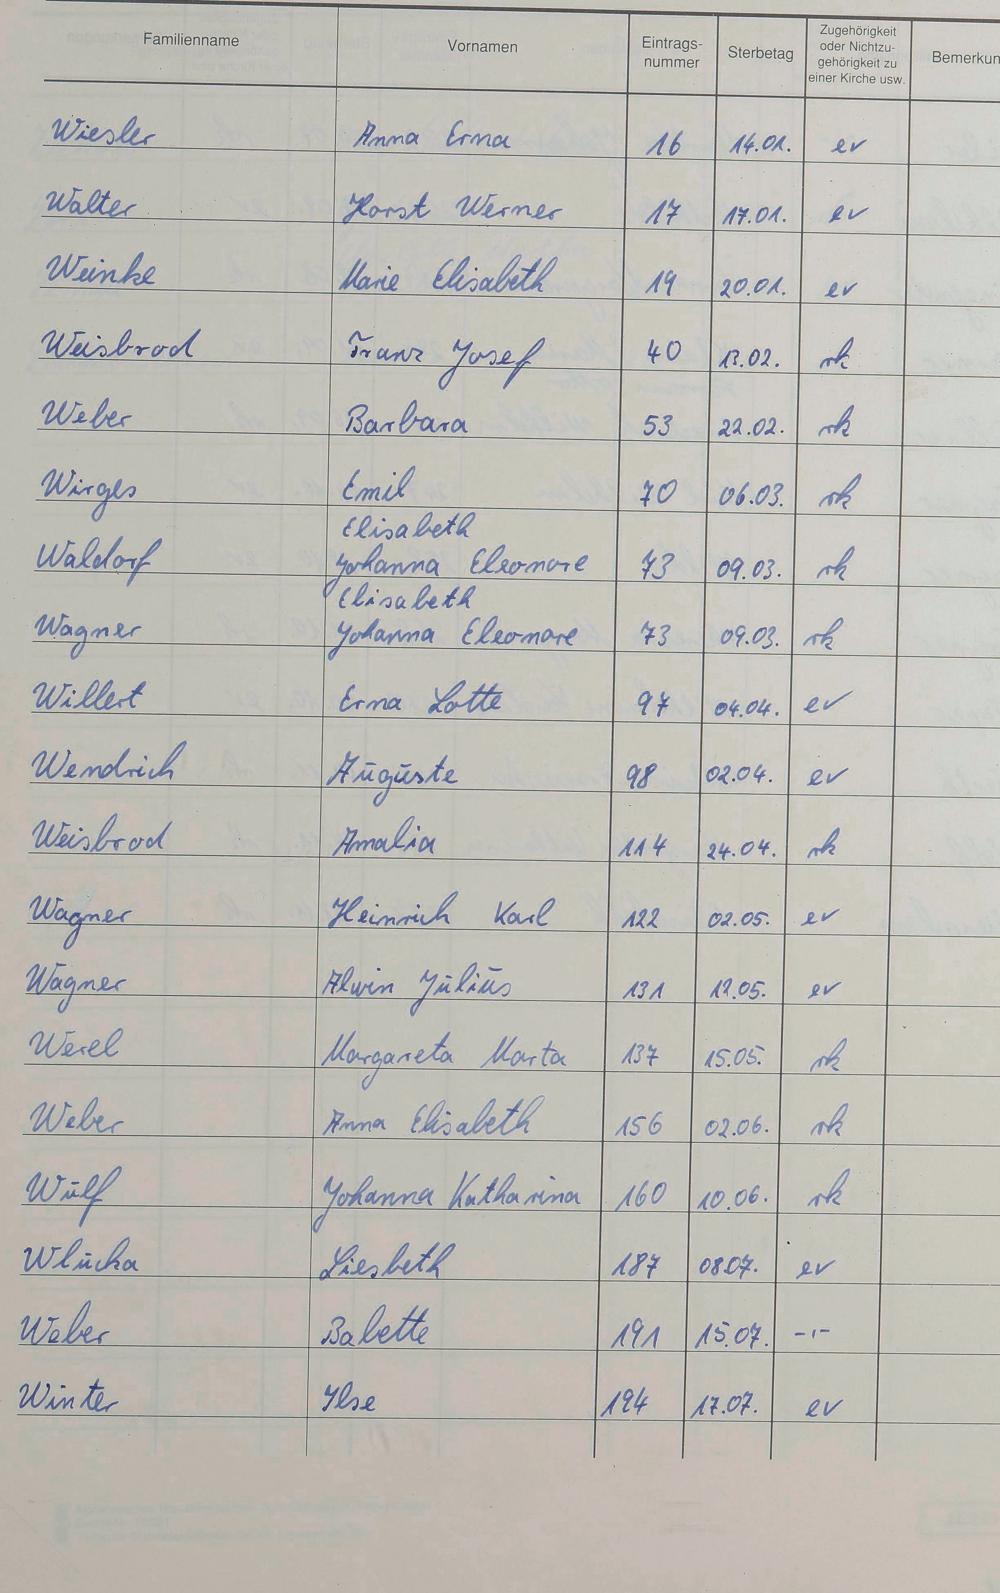 Familienname Vornamen Eintrags- nummer Sterbetag Zugehörigkeit oder Nichtzu- gehörigkeit zu einer Kirche usw. Bemerkun
Wiesler Anna Erna 16 14.01. ev
Walter Horst Werner 17 17.01. ev
Weinke Marie Elisabeth 19 20.01. ev
Weisbrod Franz Josef 40 13.02. rk
Weber Barbara 53 22.02. rk
Wirges Emil 70 06.03. rk
Elisabeth
Waldorf Johanna Eleonore 73 09.03. rk
Elisabeth
Wagner Johanna Eleonore 73 09.03. rk
Willert Erna Lotte 97 04.04. ev
Wendrich Auguste 98 02.04. ev
Weisbrod Amalia 114 24.04. rk
Wagner Heinrich Karl 122 02.05. ev
Wagner Alwin Julius 131 12.05. ev
Werel Margareta Marta 137 15.05. rk
Weber Anna Elisabeth 156 02.06. rk
Wulf Johanna Katharina 160 10.06. rk
Wlucka Liesbeth 187 08.07. ev
Weber Babette 191 15.07. -"-
Winter Ilse 194 17.07. ev